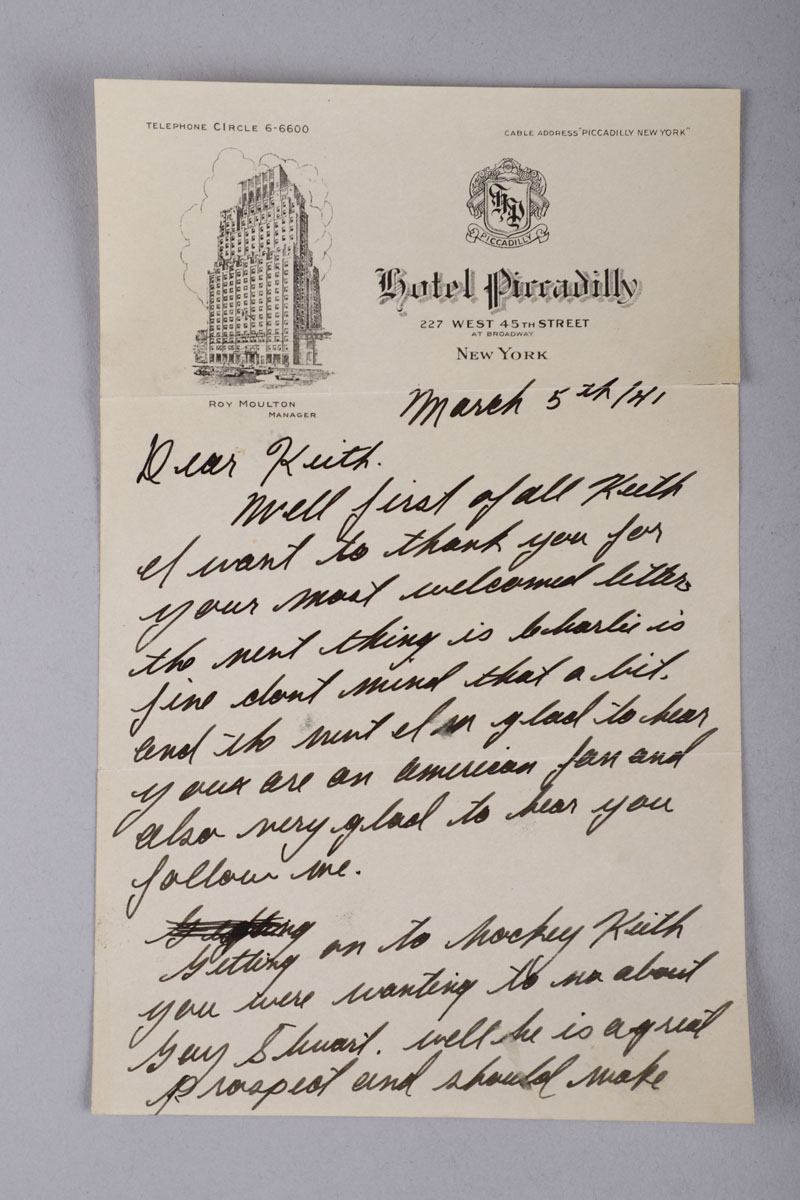 TELEPHONE CIRCLE 6-6600
CABLE ADDRESS "PICCADILLY NEW YORK"
HP
PICCADILLY
Hotel Piccadilly
227 WEST 45TH STREET
AT BROADWAY
NEW YORK
ROY MOULTON
MANAGER
March 5th/41
Dear Keith.
Well first of all Keith
I want to thank you for
your most welcomed letter
the next thing is Charlie is
fine dont mind that a bit.
and the next I m glad to hear
your are an american fan and
also very glad to hear you
follow me.
Getting on to hockey Keith
you were wanting to no about
Gay Stuart. well he is a great
prospect and should make